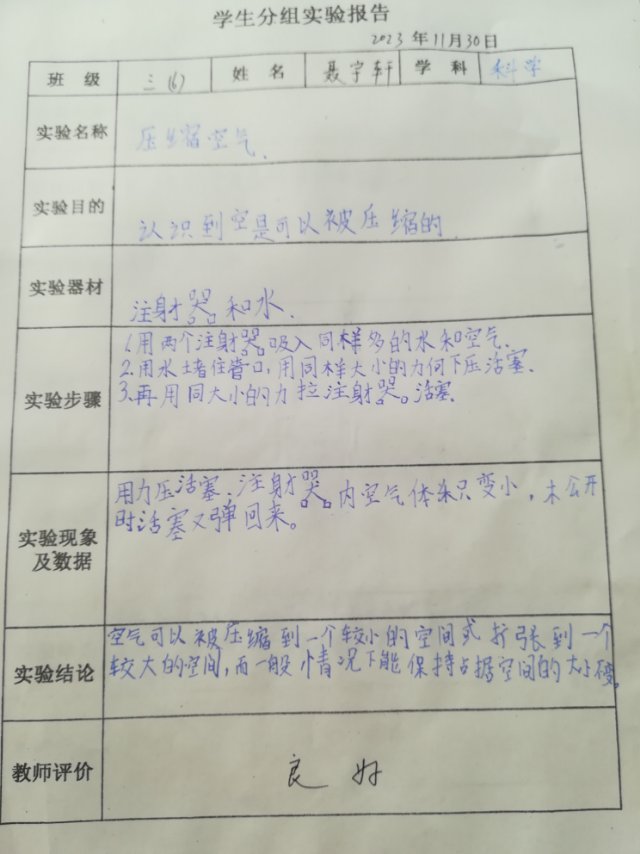 学生分组实验报告
2023年11月30日
班级 三(6) 姓名 聂宇轩 学科 科学
实验名称 压缩空气.
实验目的 认识到空是可以被压缩的.
实验器材 注射器和水.
实验步骤
1.用两个注射器吸入同样多的水和空气.
2.用水堵住管口,用同样大小的力向下压活塞.
3.再用同大小的力拉注射器。活塞.
实验现象及数据
用力压活塞,注射器。内空气体积变小,
时活塞又弹回来。
实验结论
空气可以被压缩到一个较小的空间或扩张到一个
较大的空间,而一般情况下能保持占据空间的大小变。
教师评价 良好